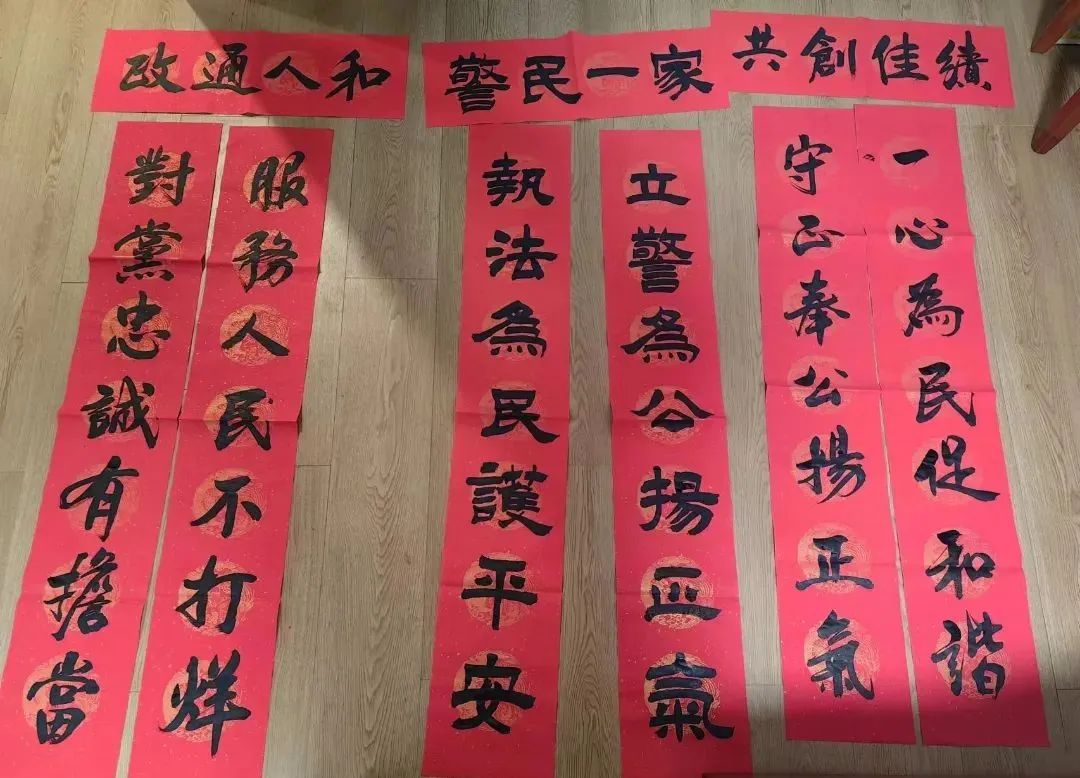 政通人和
對黨忠誠有擔當
服務人民不打烊
警民一家
執法為民護平安
立警為公揚正氣
共創佳績
守正奉公揚正氣
一心為民促和諧